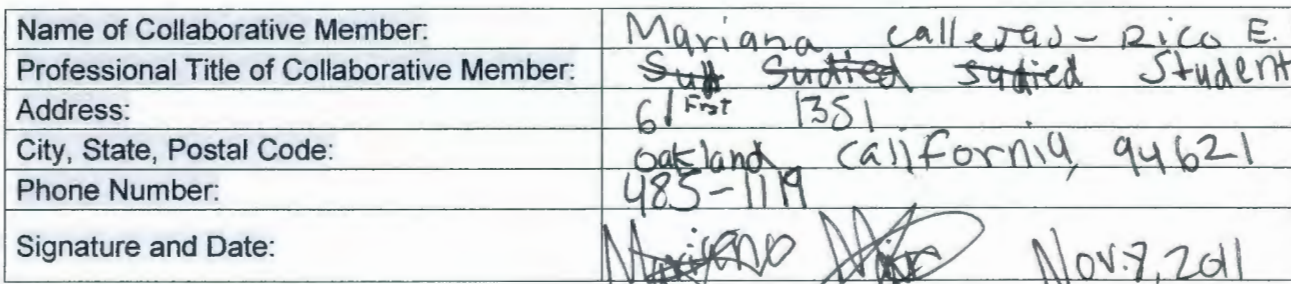 Name of Collaborative Member: Mariana Callejas-Rico E.
Professional Title of Collaborative Member: Student
Address: 61 First 1351
City, State, Postal Code: oakland, california, 94621
Phone Number: 485-1119
Signature and Date: Nov. 7, 2011